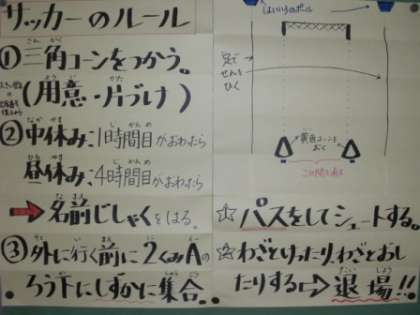 サッカーのルール
①三角コーンをつかう。
(用意・片づけ)
②中休み:1時間目がおわったら
昼休み:4時間目がおわったら
➡名前じしゃくをはる。
③外に行く前に2くみAの
ろう下にしずかに集合。
足で
せんを
ひく
三角コーンを
おく
☆パスをしてシュートする。
☆わざとけったり、わざとおし
たりする⇨退場!!